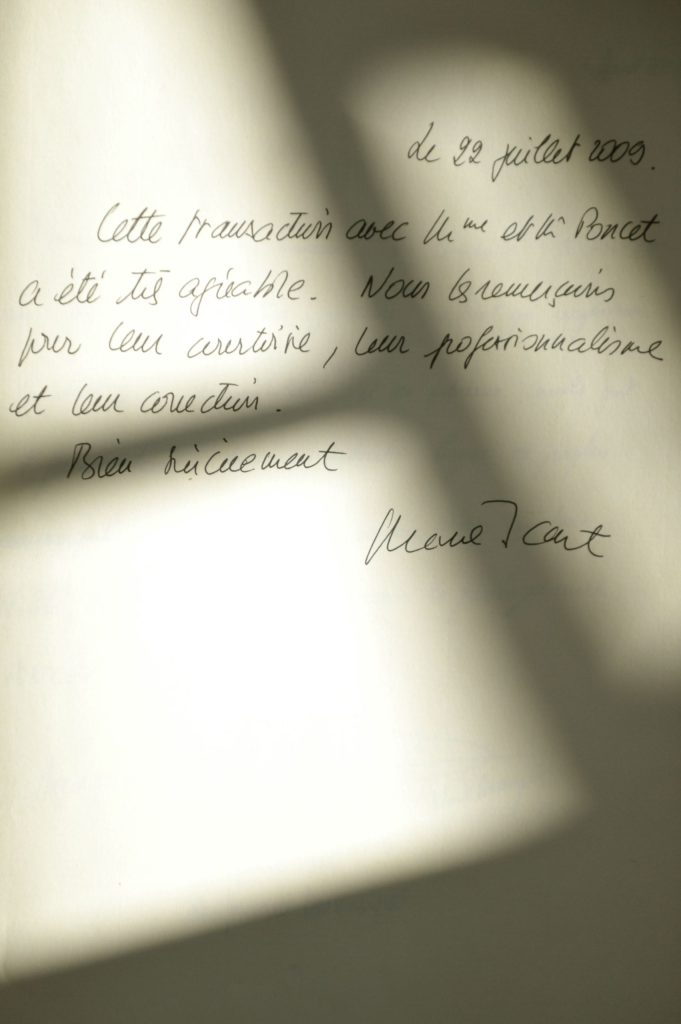 Le 22 juillet 2009.
Cette transaction avec Mme et Mr Poncet
a été très agréable. Nous les remercions
pour leur courtoisie, leur professionnalisme
et leur correction.
Bien sincèrement